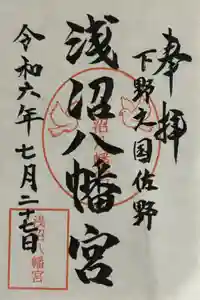 奉拝
下野之国佐野
浅沼八幡宮
令和六年七月二十七日
浅沼八幡宮